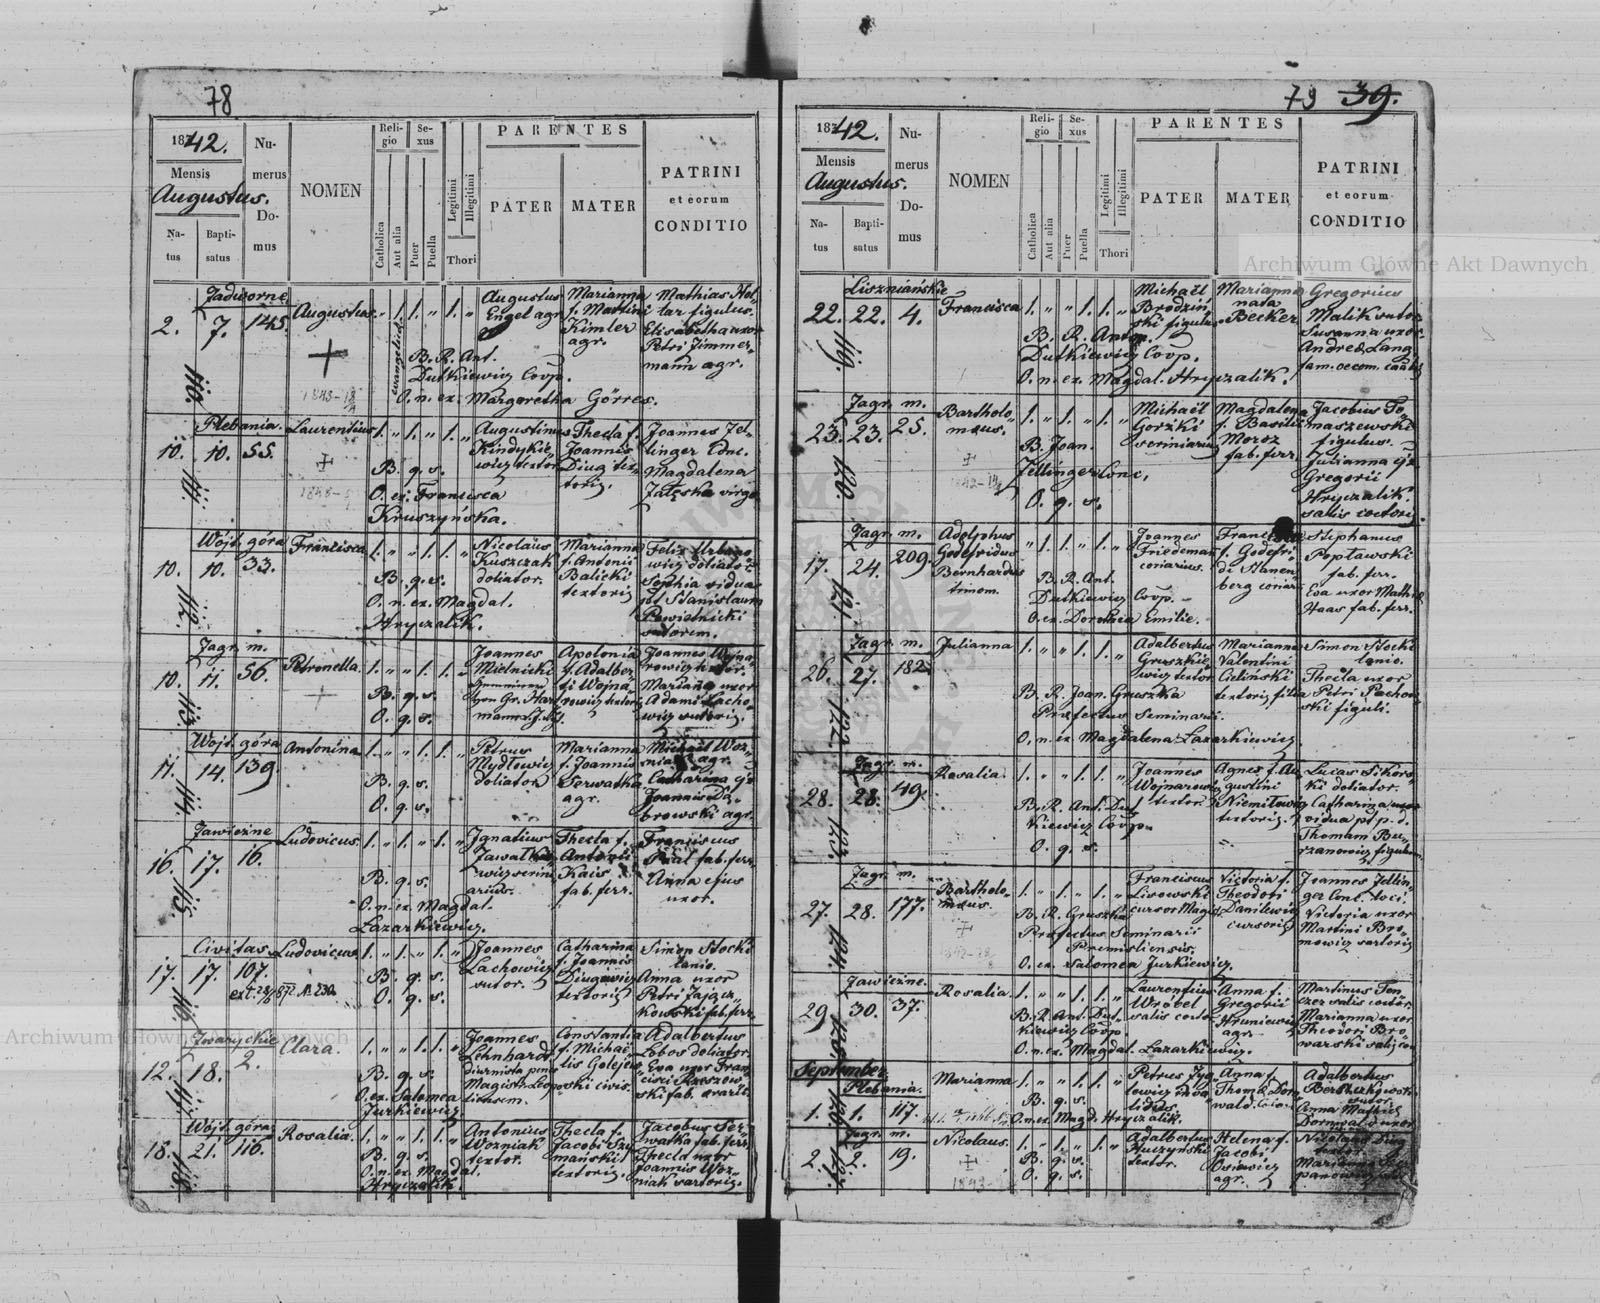 78
1842.
Mensis
Augustus.
Natus
Baptisatus
Numerus Domus
NOMEN
Religio
Catholica
Aut alia
Sexus
Puer
Puella
Legitimi
Illegitimi
Thori
PARENTES
PATER
MATER
PATRINI
et eorum
CONDITIO
Zadworne
2. 7. 145. Augustus
evangelica
Augustus
Engel agr.
Marianna
f. Martini
Kimler
agr.
Mathias Hol-
lar figulus.
Elisabetha uxor
Petri Zimmer-
mann agr.
B. R. Ant.
Dutkiewicz Coop.
O. n. ex. Margaretha Görres.
110.
Plebania.
10. 10. 55. Laurentius
Augustinus
Kindykie-
wicz textor
Thecla f.
Joannis
Diug tex-
toris.
Joannes Zel-
linger Conc.
Magdalena
Zaleska virgo
B. q. s.
O. ex. Francisca
Kruszyńska.
111.
Wojt. góra
10. 10. 33. Francisca
Nicolaus
Kuszczak
doliator.
Marianna
f. Antonii
Balicki
textoris
Felix Urbano-
wicz doliator
Sophia vidua
Stanislaum
sutorem.
B. q. s.
O. n. ex. Magdal.
Hryczalik.
112.
Zagr. m.
10. 11. 56. Petronella.
Joannes
Mielnicki
Apolonia
f. Adalber-
ti Wojna-
rowicz textoris
Joannes Wojna-
rowicz textor.
Marianna uxor
Adami Lacho-
wicz sutoris.
B. q. s.
O. q. s.
113.
Wojt. góra
11. 14. 139. Antonina
Petrus
Mydłowicz
doliator
Marianna
f. Joannis
Serwatka
agr.
Michael Woz-
niak agr.
Catharina
Joannis Da-
browski agr.
B. q. s.
O. q. s.
114.
Zawiezne
16. 17. 16. Ludovicus.
Ignatius
Thecla f.
Antonii
Kais
fab. ferr.
Franciscus
fab. ferr.
Anna ejus
uxor.
B. q. s.
O. n. ex. Magdal.
Lazarkiewicz.
115.
Civitas
17. 17. 107. Ludovicus
Joannes
Lachowicz
sutor.
Catharina
f. Joannis
Diugiewicz
textoris
Simon Stocki
lanio.
Anna uxor
Petri Zającz-
kowski fab. ferr.
B. q. s.
O. q. s.
116.
Zwaryckie
12. 18. 2. Clara.
Joannes
Lehnhardt
diurnista penes
Magistr. Leopo-
liensem.
Constantia
f. Michae-
lis Golejew-
ski civis.
Adalbertus
Lobos doliator.
Eva uxor Fran-
cisci Rzeszow-
ski fab. erarii.
B. q. s.
O. ex. Salomea
Jurkiewicz
117.
Wojt. góra
18. 21. 116. Rosalia.
Antonius
Wozniak
textor.
Thecla f.
Jacobi Szy-
mański
textoris.
Jacobus Ser-
watka fab. ferr.
Thecla uxor
Joannis Woz-
niak sartoris.
B. q. s.
O. n. ex. Magdal.
Hryczalik.
118.
79 39.
1842.
Mensis
Augustus.
Natus
Baptisatus
Numerus Domus
NOMEN
Religio
Catholica
Aut alia
Sexus
Puer
Puella
Legitimi
Illegitimi
Thori
PARENTES
PATER
MATER
PATRINI
et eorum
CONDITIO
Archiwum Główne Akt Dawnych
Liszniańskie
22. 22. 4. Francisca
Michaël
Brodziń-
ski figulus
Marianna
nata
Becker.
Gregorius
Malik sutor
Susanna uxor
Andreæ Lang
B. R. Anton.
Dutkiewicz Coop.
O. n. ex. Magdal. Hryczalik.
119.
Zagr. m.
23. 23. 25. Bartholo-
mæus.
Michaël
Gorzki
scriniarius
Magdalena
f. Basilii
Moroz
fab. ferr.
Jacobus To-
maszewski
figulus.
Julianna
Gregorii
Hryczalik.
salis coctoris.
B. Joan.
Zellinger Conc.
O. q. s.
120.
Zagr. m.
17. 24. 209. Adolphus
Godefridus
Bernhardus
trinom.
Joannes
Friedeman
coriarius.
f. Godefri-
di
Stephanus
Popławski
fab. ferr.
Eva uxor Mathiæ
Haas fab. ferr.
B. R. Ant.
Dutkiewicz Coop.
O. ex. Dorothea Emilie.
121.
Zagr. m.
26. 27. 182. Julianna
Adalbertus
Gruszkie-
wicz textor
Marianna
Valentini
Cieliński
textoris filia
Simon Stocki
lanio.
Thecla uxor
Petri Pachow-
ski figuli.
B. R. Joan. Gruszka
Præfectus Seminarii.
O. n. ex. Magdalena Lazarkiewicz
122.
Zagr. m.
28. 28. 49. Rosalia.
Joannes
Wojnarowicz
textor.
Agnes f. Au-
gustini
Niemiłowicz
textoris.
Lucas Sikors-
ki doliator.
Catharina
vidua
Thomam Bu-
rzanowicz figulum.
B. R. Ant. Dut-
kiewicz Coop.
O. q. s.
123.
Zagr. m.
27. 28. 177. Bartholo-
mæus.
Franciscus
Lisowski
cursor Magis.
Victoria f.
Theodori
Danilewicz
cursoris
Joannes Zellin-
ger Conc. loci.
Victoria uxor
Martini Bro-
mowicz sartoris
B. R. Gruszka
Præfectus Seminarii
Premisliensis.
O. ex. Salomea Jurkiewicz.
124.
Zawiezne.
29. 30. 37. Rosalia.
Laurentius
Wróbel
salis coctor
Anna f.
Gregorii
Hruniewicz
agr.
Martinus Ton-
czer salis coctor
Marianna uxor
Theodori Bro-
warski
B. R. Ant. Dut-
kiewicz Coop.
O. n. ex. Magdal. Lazarkiewicz.
125.
September.
Plebania.
1. 1. 117. Marianna
Petrus Zyg-
Anna f.
Thomæ Dorn-
wald
Adalbertus
sutor
Anna Mathiæ
Dornwald uxor
B. q. s.
O. n. ex. Magd. Hryczalik.
126.
Zagr. m.
2. 2. 19. Nicolaus.
Adalbertus
Huczyński
textor.
Helena f.
Jacobi
Osiewicz
agr.
Nicolaus Diug
textor.
B. q. s.
O. q. s.
127.
Archiwum Główne Akt Dawnych